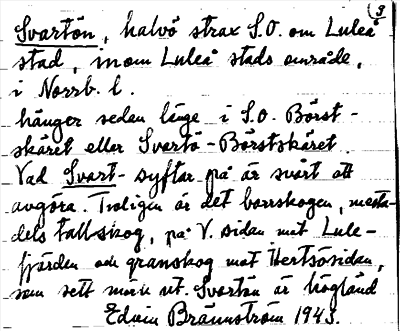 3
Svartön, halvö strax S.O. om Luleå
stad, inom Luleå stads område,
i Norrb. l.
hänger sedan länge i S.O. Börst-
skäret eller Svartö-Börstskäret.
Vad Svart- syftar på är svårt att
avgöra. Troligen är det barrskogen, mesta-
dels tallskog, på V. sidan mot Lule-
fjärden och granskog mot Hertsösidan,
som sett mörk ut. Svartön är högländ
Edvin Brännström 1943.